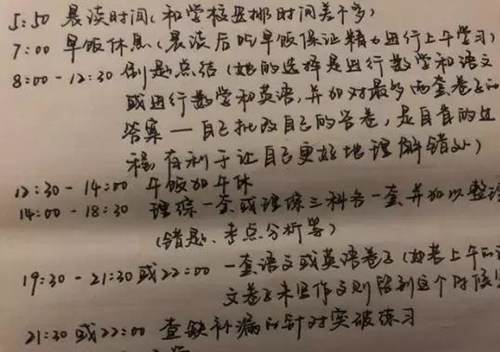 5:50 晨读时间(和学校安排时间差不多)
7:00 早饭休息(晨读后吃早饭保证精力进行上午学习)
8:00-12:30 刷题总结(她的选择是进行数学和语文
或进行数学和英语,并加对最多两套卷子的
答案—自己批改自己的答卷,是自省的过
程,有利于让自己更好地理解错处)
12:30-14:00 午饭加午休
14:00-18:30 理综一套或理综三科各一套,并加以整理
(错题、考点分析等)
19:30-21:30或22:00 一套语文或英语卷子(如若上午的语
文卷子未写作文则留到这个时候
21:30或22:00 查缺补漏的针对突破练习